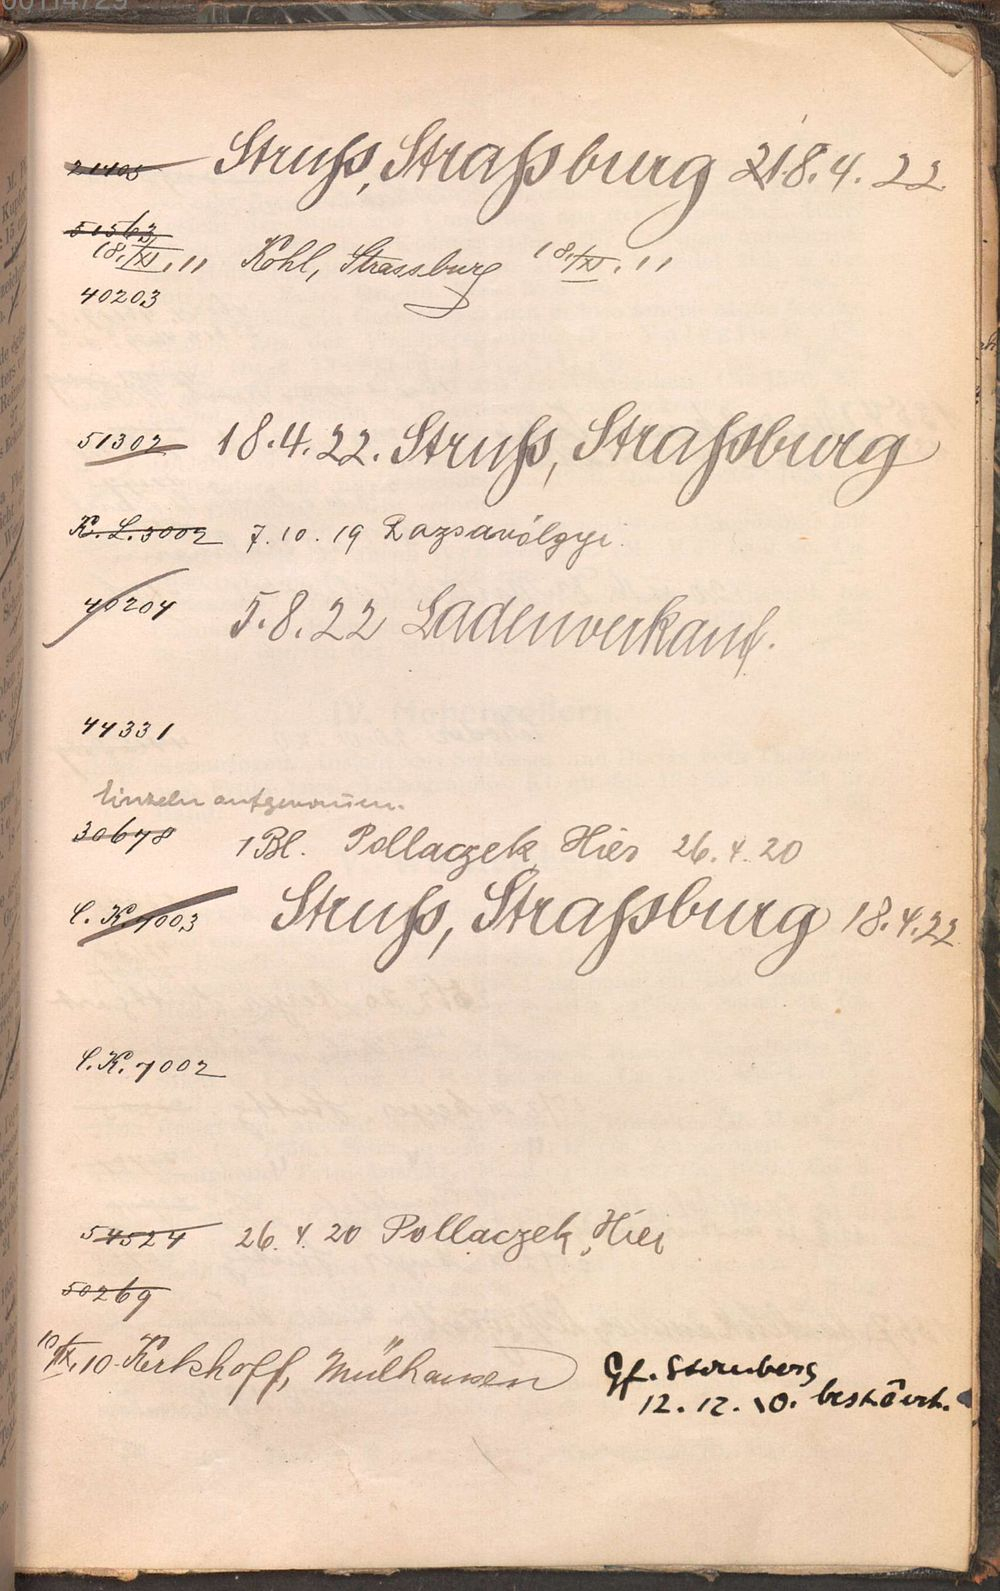 00114729
21405 Struß, Straßburg 18.4.22
51563
18./XI.11 Kohl, Strassburg 18./XI.11
40203
51302 18.4.22. Struß, Straßburg
K.L.3002 7.10.19 Rozsavölgyi.
40204 5.8.22 Ladenverkauf.
44331
einzeln aufgenommen.
30678 1 Bl. Pollaczek, Hier 26.4.20
C.K.7003 Struß, Straßburg 18.4.22
C.K.7002
54524 26.4.20 Pollaczek, Hier
50269
10/IX.10. Kerkhoff, Mülhausen
Gf. Sternberg
12.12.10.